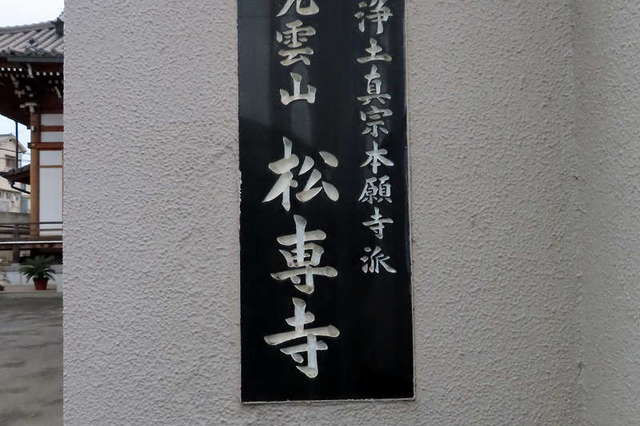 浄土真宗本願寺派
雲山 松専寺